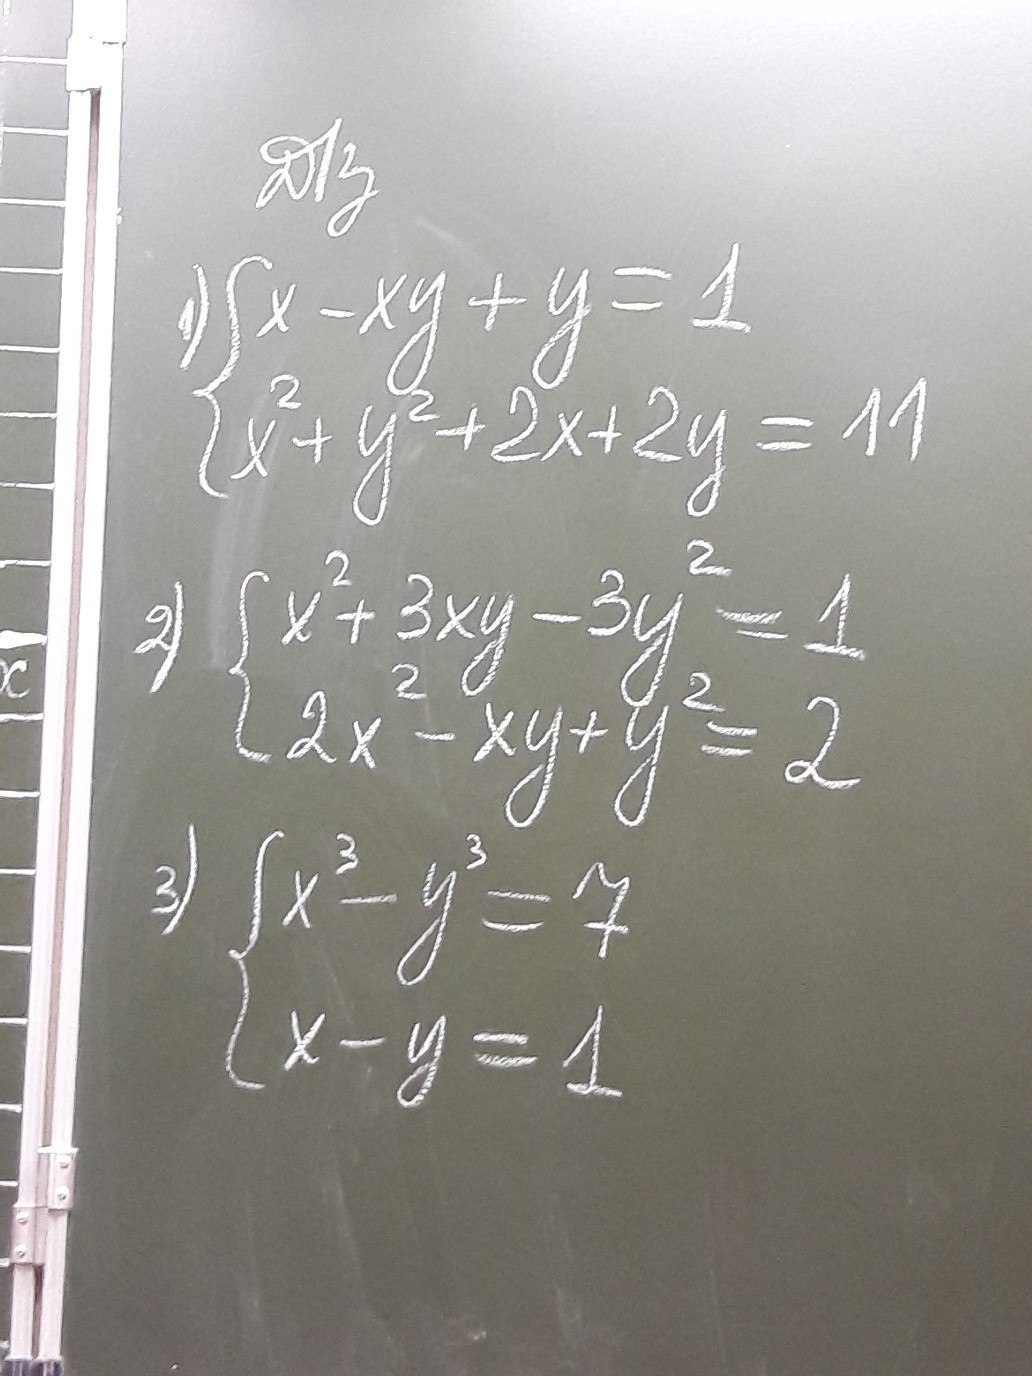 Д/з
1) { x - xy + y = 1
x² + y² + 2x + 2y = 11
2) { x² + 3xy - 3y² = 1
2x² - xy + y² = 2
3) { x³ - y³ = 7
x - y = 1
x